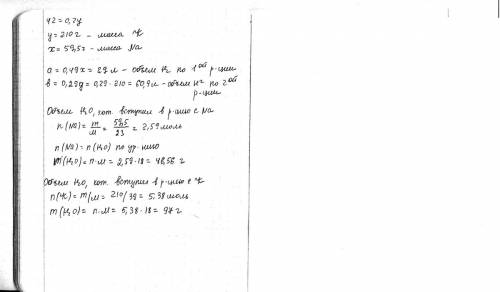 42 = 0,2y
y = 210 г - масса K
x = 59,5 г - масса Na
a = 0,49x = 29 л - объем H2 по 1ой р-ции
b = 0,29y = 0,29 · 210 = 60,9 л - объем H2 по 2ой
р-ции
Объем H2O, кот. вступил в р-цию с Na
n(Na) = m/M = 59,5/23 = 2,59 моль
n(Na) = n(H2O) по ур-нию
m(H2O) = n·M = 2,59·18 = 46,56 г
Объем H2O, кот. вступил в р-цию с K
n(K) = m/M = 210/39 = 5,38 моль
m(H2O) = n·M = 5,38·18 = 97 г